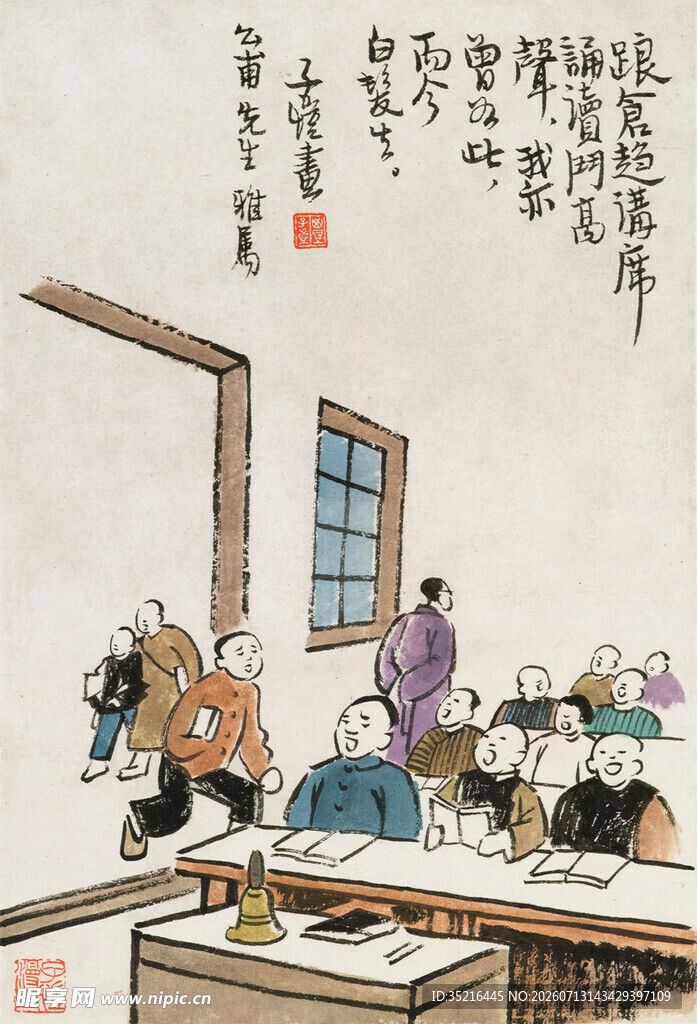 踉倉趍講席
誦讀鬥高
聲、我亦
曾如此，
而今
白髮生。
子愷畫
公甫先生 雅属
昵享网 www.nipic.cn
ID:35216445 NO:20260713143429397109